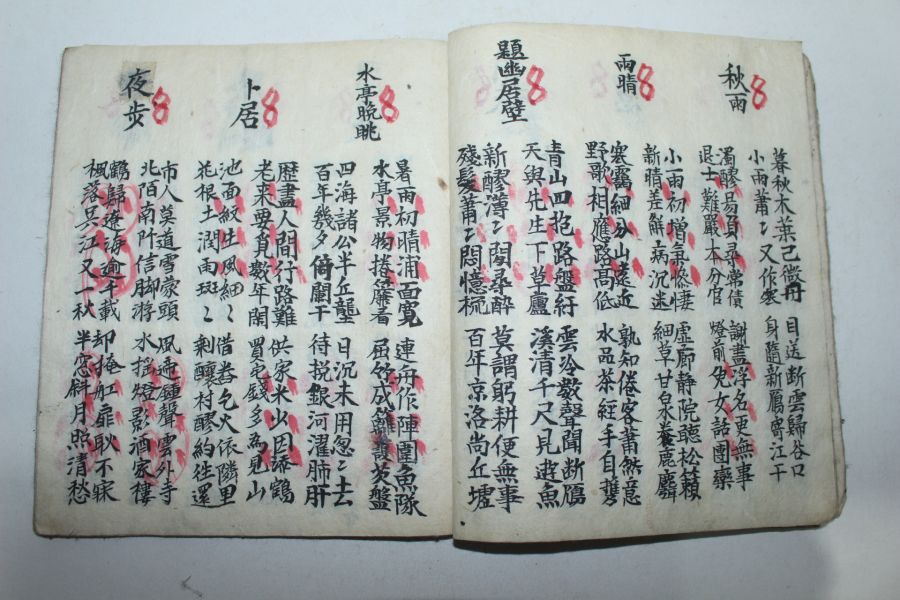 秋雨
暮秋木葉已微丹
小雨蕭〻又作寒
目送斷雲歸谷口
身隨新鴈寄江干
濁醪易負尋常債
退士難嚴本分官
謝盡浮名更無事
燈前兒女話團欒
雨晴
小雨初增氣慘悽
新晴差解病沉迷
虛廊靜院聽松籟
細草甘泉養鹿麛
寒 細分山遠近
野歌相應路高低
孰知倦客蕭然意
水品茶經手自攜
題幽居壁
青山四抱路盤紆
天與先生下草廬
雲冷數聲聞斷鴈
溪清千尺見遊魚
新醪薄〻閑尋醉
殘髮蕭〻悶憶梳
莫謂躬耕便無事
百年京洛尚丘墟
水亭晚眺
暑雨初晴浦面寬
水亭景物捲簾看
連舟作陣圍魚隊
屈竹成籬護芡盤
四海諸公半丘壟
百年幾夕倚闌干
日沉未用忽〻去
待挽銀河濯肺肝
卜居
歷盡人間行路難
老來要覓數年閑
供家米少因添鶴
買宅錢多為見山
池面紋生風細〻
花根土潤雨斑〻
借 乞火依隣里
剩釀村醪約往還
夜步
市人莫道雪蒙頭
北陌南阡信脚游
風遞鍾聲雲外寺
水搖燈影酒家樓
鶴歸遼海逾千載
楓落吳江又一秋
却掩舡扉耿不寐
半窓斜月照清愁